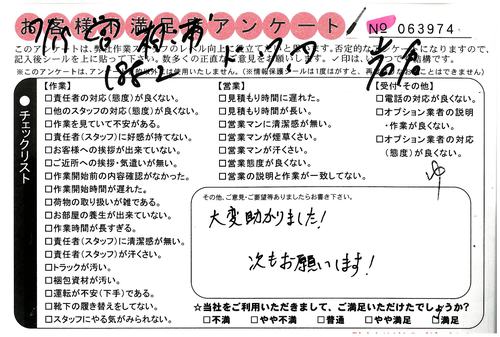 お客様満足度アンケート！
№ 063974
このアンケートは、弊社作業スタッフのレベル向上に役立てたいと思います。否定的なアンケートになりますので、
記入後シールを上に貼って下さい。数多くの正直なご意見をお願いします。✓印は、
※このアンケートは、
使用いたしません。（※情報保護シールは1度はがすと、再
ことはできません）
チェックリスト
【作業】
□責任者の対応（態度）が良くない。
□他のスタッフの対応（態度）が良くない。
□作業を見ていて不安がある。
□責任者（スタッフ）に好感が持てない。
□お客様への挨拶が出来ていない。
□ご近所への挨拶・気遣いが無い。
□作業開始前の内容確認がなかった。
□作業開始時間が遅れた。
□荷物の取り扱いが雑である。
□お部屋の養生が出来ていない。
□作業時間が長すぎる。
□責任者（スタッフ）に清潔感が無い。
□責任者（スタッフ）が汗くさい。
□トラックが汚い。
□梱包資材が汚い。
□運転が不安（下手）である。
□靴下の履き替えをしてない。
□スタッフにやる気がみられない。
【営業】
□見積もり時間に遅れた。
□見積もり時間が長い。
□営業マンに清潔感が無い。
□営業マンが煙草くさい。
□営業マンが汗くさい。
□営業態度が良くない。
□営業の説明と作業が一致してない。
【受付その他】
□電話の対応が良くない。
□オプション業者の説明
・作業が良くない。
□オプション業者の対応
（態度）が良くない。
その他、ご意見・ご要望等ありましたらお書き下さい。
大変助かりました！
次もお願いします！
☆当社をご利用いただきまして、ご満足いただけたでしょうか？
□不満 □やや不満 □普通 □やや満足 □満足